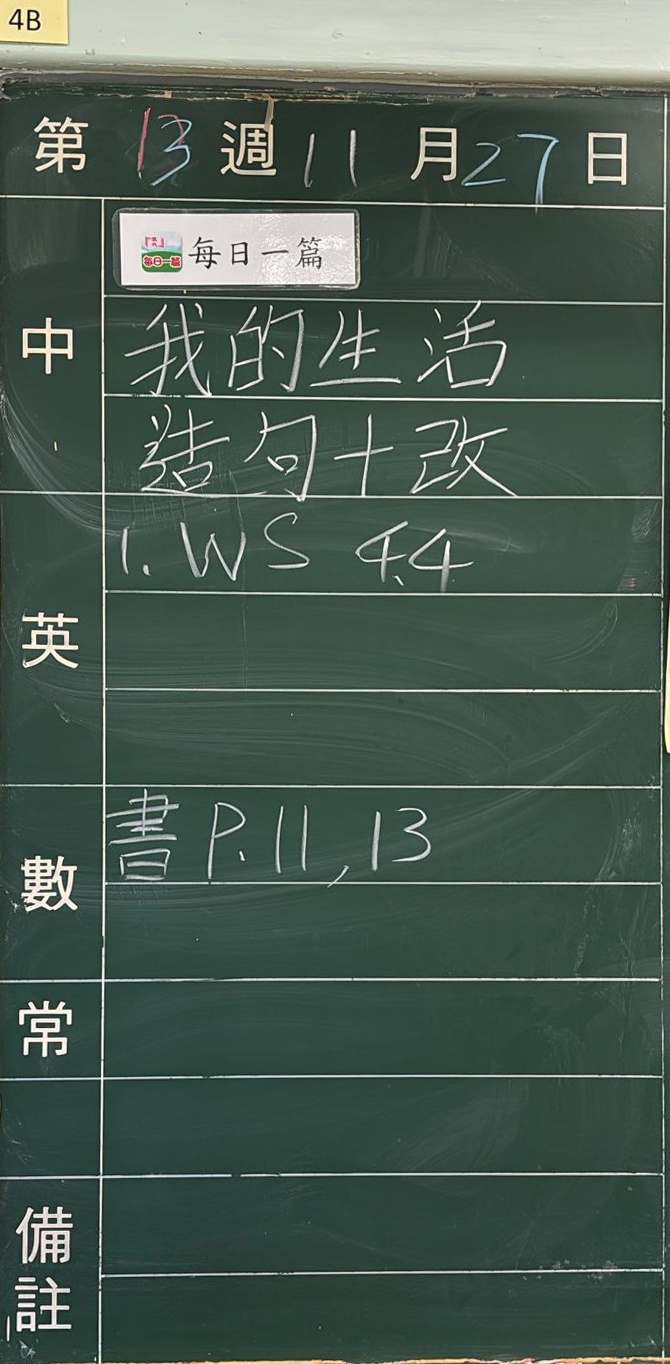 4B
第 13 週 11 月 27 日
每日一篇 每日一篇
中
我的生活
造句+改
英
1. WS 4.4
數
書 P.11, 13
常
備註